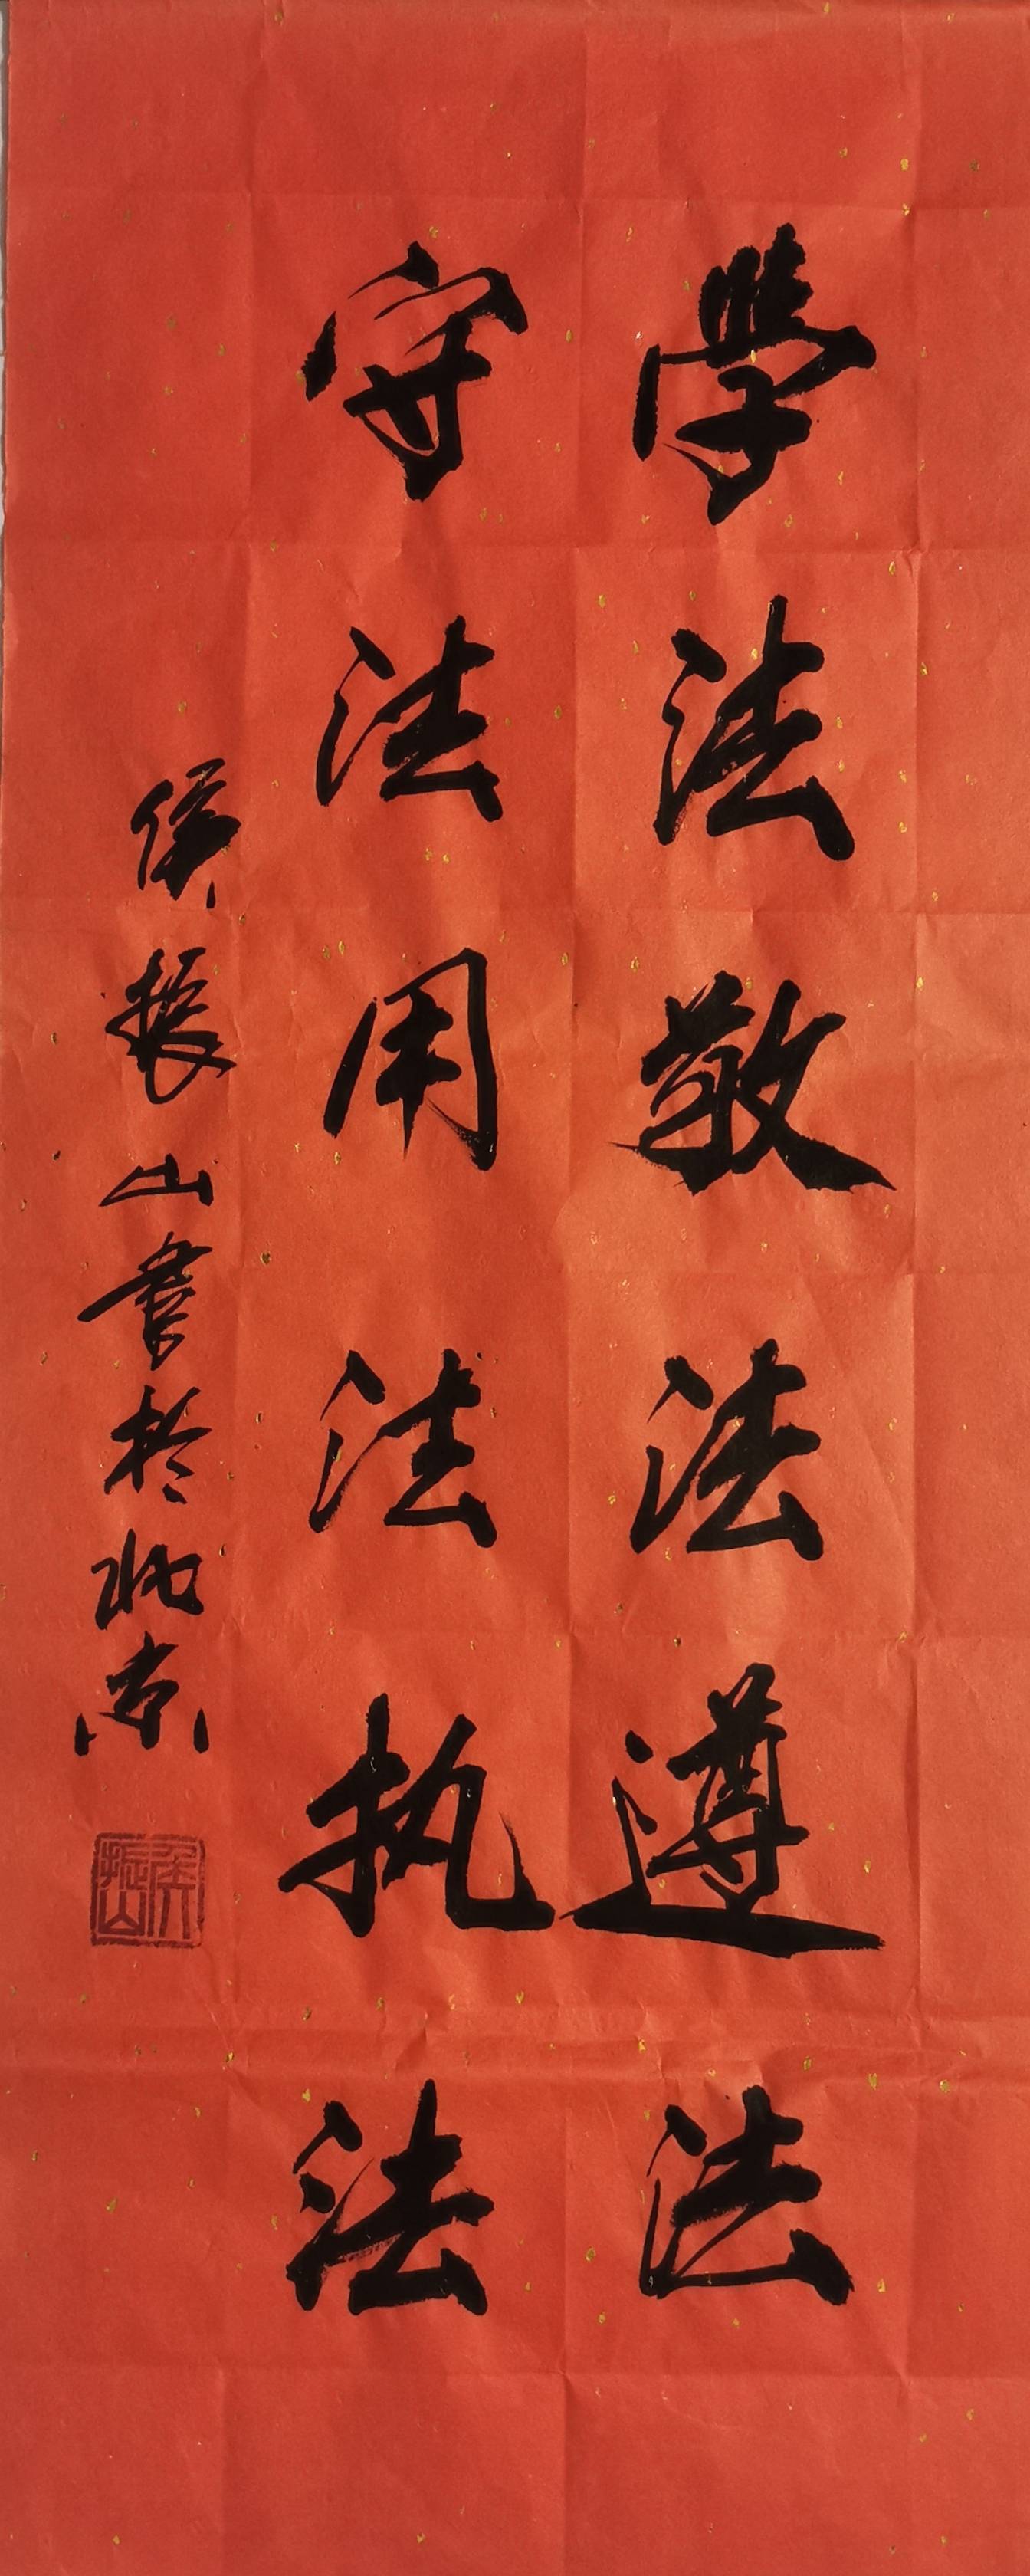 学法敬法遵法
守法用法执法
侯振山书於北京
侯振山